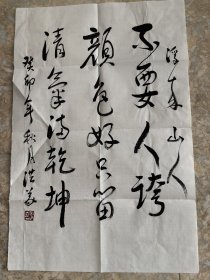 不要人誇
顏色好只留
清氣滿乾坤
癸卯年秋月洪義
浮来山人